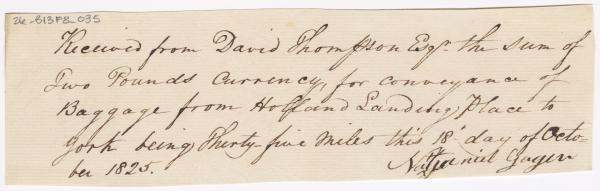 24-B13F8_035
Received from David Thompson Esqr. the sum of
Two Pounds Currency, for conveyance of
Baggage from Holland Landing Place to
York being Thirty-five Miles this 18' day of Octo-
ber 1825.
Nathaniel